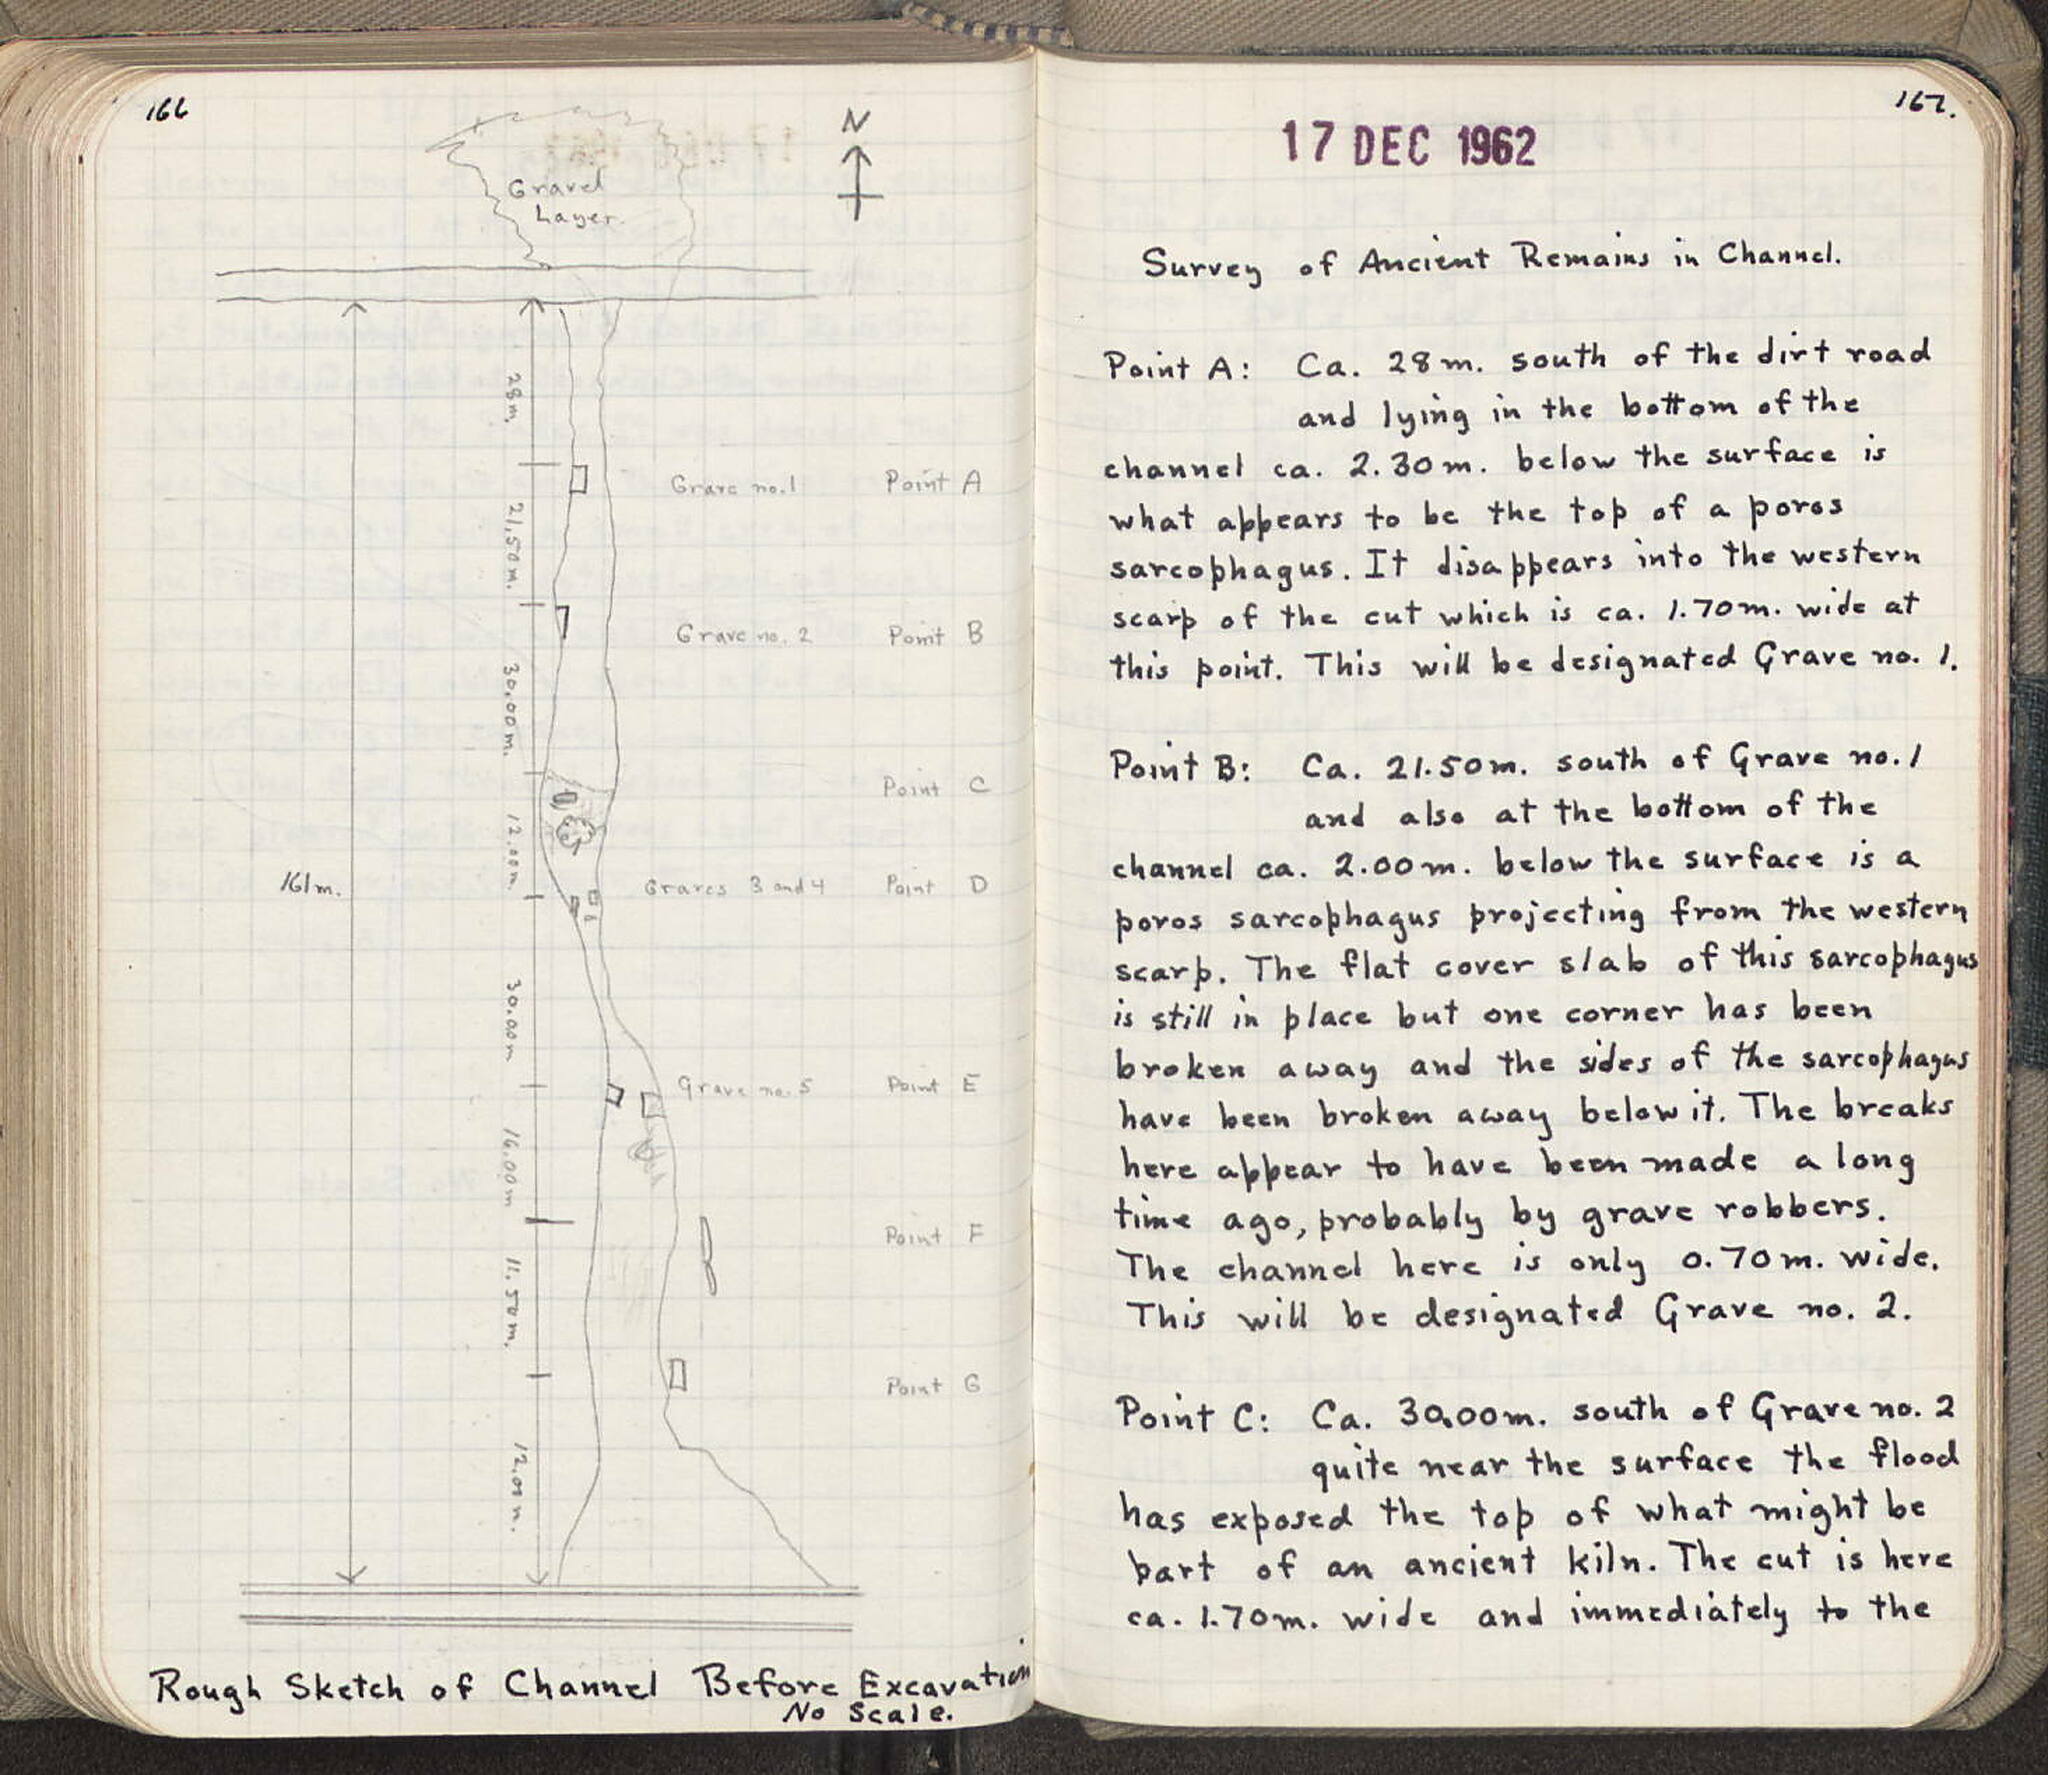 166
N
Gravel
Layer.
28m.
Grave no. 1 Point A
21.50m.
Grave no. 2 Point B
30.00m.
Point C
12.00m.
161m.
Graves 3 and 4 Point D
30.00m
Grave no. 5 Point E
16.00m
Point F
11.50m.
Point G
12.00m.
Rough Sketch of Channel Before Excavation
No Scale.
167.
17 DEC 1962
Survey of Ancient Remains in Channel.
Point A: Ca. 28m. south of the dirt road
and lying in the bottom of the
channel ca. 2.30m. below the surface is
what appears to be the top of a poros
sarcophagus. It disappears into the western
scarp of the cut which is ca. 1.70m. wide at
this point. This will be designated Grave no. 1.
Point B: Ca. 21.50m. south of Grave no. 1
and also at the bottom of the
channel ca. 2.00m. below the surface is a
poros sarcophagus projecting from the western
scarp. The flat cover slab of this sarcophagus
is still in place but one corner has been
broken away and the sides of the sarcophagus
have been broken away below it. The breaks
here appear to have been made a long
time ago, probably by grave robbers.
The channel here is only 0.70m. wide.
This will be designated Grave no. 2.
Point C: Ca. 30.00m. south of Grave no. 2
quite near the surface the flood
has exposed the top of what might be
part of an ancient kiln. The cut is here
ca. 1.70m. wide and immediately to the